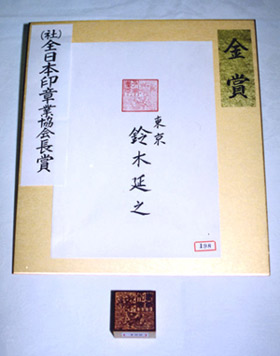 金賞
東京
鈴木延之
(社)全日本印章業協会長賞